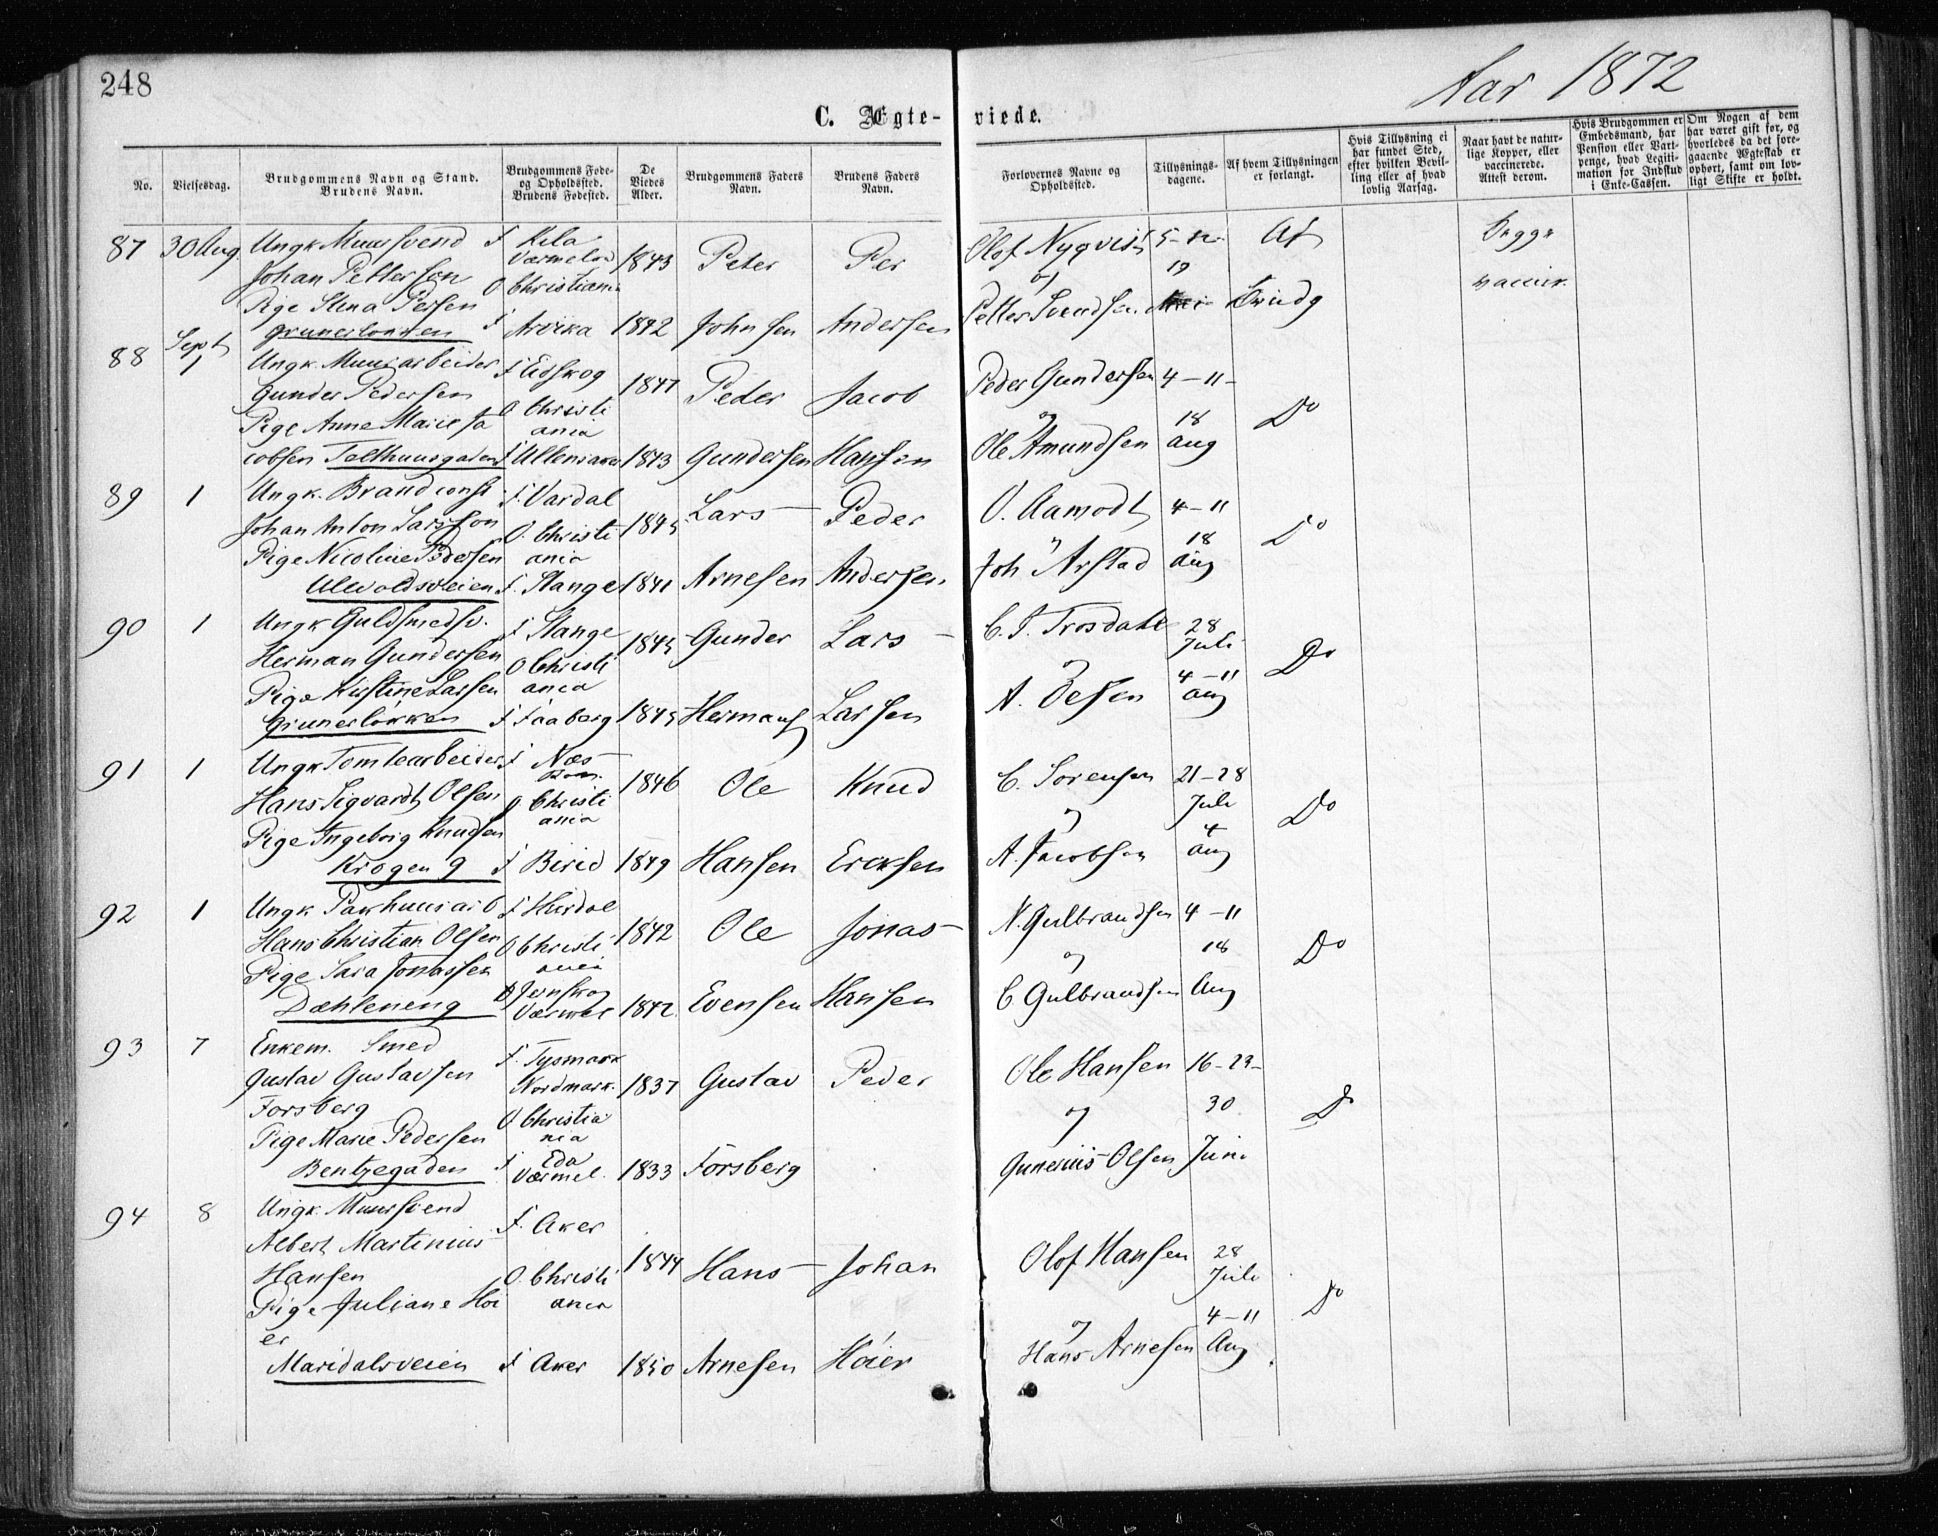 248
Aar 1872
C. Ægte- viede.
No.
Vielsesdag.
Brudgommens Navn og Stand.
Brudens Navn.
Brudgommens Føde-
og Opholdssted.
Brudens Fødested.
De
Viedes
Alder.
Brudgommens Faders
Navn.
Brudens Faders
Navn.
Forlovernes Navne og
Opholdssted.
Tillysnings-
dagene.
Af hvem Tillysningen
er forlangt.
Hvis Tillysning ei
har fundet Sted,
efter hvilken Bevil-
ling eller af hvad
lovlig Aarsag.
Naar havt de natur-
lige Kopper, eller
vaccinerede.
Attest derom.
Hvis Brudgommen er
Embedsmand, har
Pension eller Vart-
penge, hvad Legiti-
mation for Indskud
i Enke-Cassen.
Om Nogen af dem
har været gift før, og
hvorledes da det fore-
gaaende Ægteskab er
ophørt, samt om lov-
ligt Skifte er holdt.
87 30 Aug. Ungk Muursvend F Kila Olof Nyqvist 5-12 Af Begge
Johan Petterson Værmeland 1843 Peter Per og 19 vaccin.
O Christiania
Pige Stina Persen Petter Svendsen Brudg
Grunerløkken F Arvika 1842 Johnsen Andersen
88 Sept 1 Ungk. Muurarbeider F Eidskog 1847 Peder Jacob Peder Gundersen 4-11-
Gunder Pedersen O Christi og 18 Do
Pige Anne Marie Ja ania Ole Amundsen aug
cobsen Telthuusgaden F Ullensaker 1843 Gundersen Hansen
89 1 Ungk. Brandconst F. Vardal Lars Peder O. Aamodt 4-11
Johan Anton Larsson O. Christi 1845 18 Do
Pige Nicoline Pedersen ania Joh Arstad aug
Ulevoldsveien F. Stange 1841 Arnesen Andersen
90 1 Ungk Guldsmedsv. F Stange 1845 Gunder Lars C. T. Trosdahl 28
Herman Gundersen O Christi og Juli Do
Pige Kirstine Larsen ania A. 4-11
Grunerløkken F Faaberg 1845 Hermans Larsen aug
91 1 Ungk Tomtearbeider F Næs 1846 Ole Knud C. Sørensen 21-28
Hans Sigvardt Olsen Rom. O Christi og Juli Do
Pige Ingeborg Knudsen ania 4
Krogen 9 F Birid 1849 Hansen Eriksen A. Jacobsen aug
92 1 Ungk Pakhuusarb F Hurdal 1842 Ole Jonas N. Gulbrandsen 4-11
Hans Christian Olsen O Christi og 18 Do
Pige Sara Jonassen ania
Dæhleneng F Jernskog Værmel 1842 Evensen Hansen C Gulbrandsen Aug
93 7 Enkem. Smed F. Tysmark Ole Hansen 16-23-
Gustav Gustavsen Nordmark. 1837 Gustav Peder og 30 Do
Forsberg O Christia
Pige Marie Pedersen nia Gunerius Olsen Juni
Bentzegaden F Eda Værmel. 1833 Forsberg
94 8 Ungk. Muursvend F. Aker
Albert Martinius 1844 Hans Johan Olof Hansen 28
Hansen O. Christi Juli
Pige Juliane Høi ania og 4-11 Do
er Hans Arnesen Aug
Maridalsveien F Aker 1850 Arnesen Høier